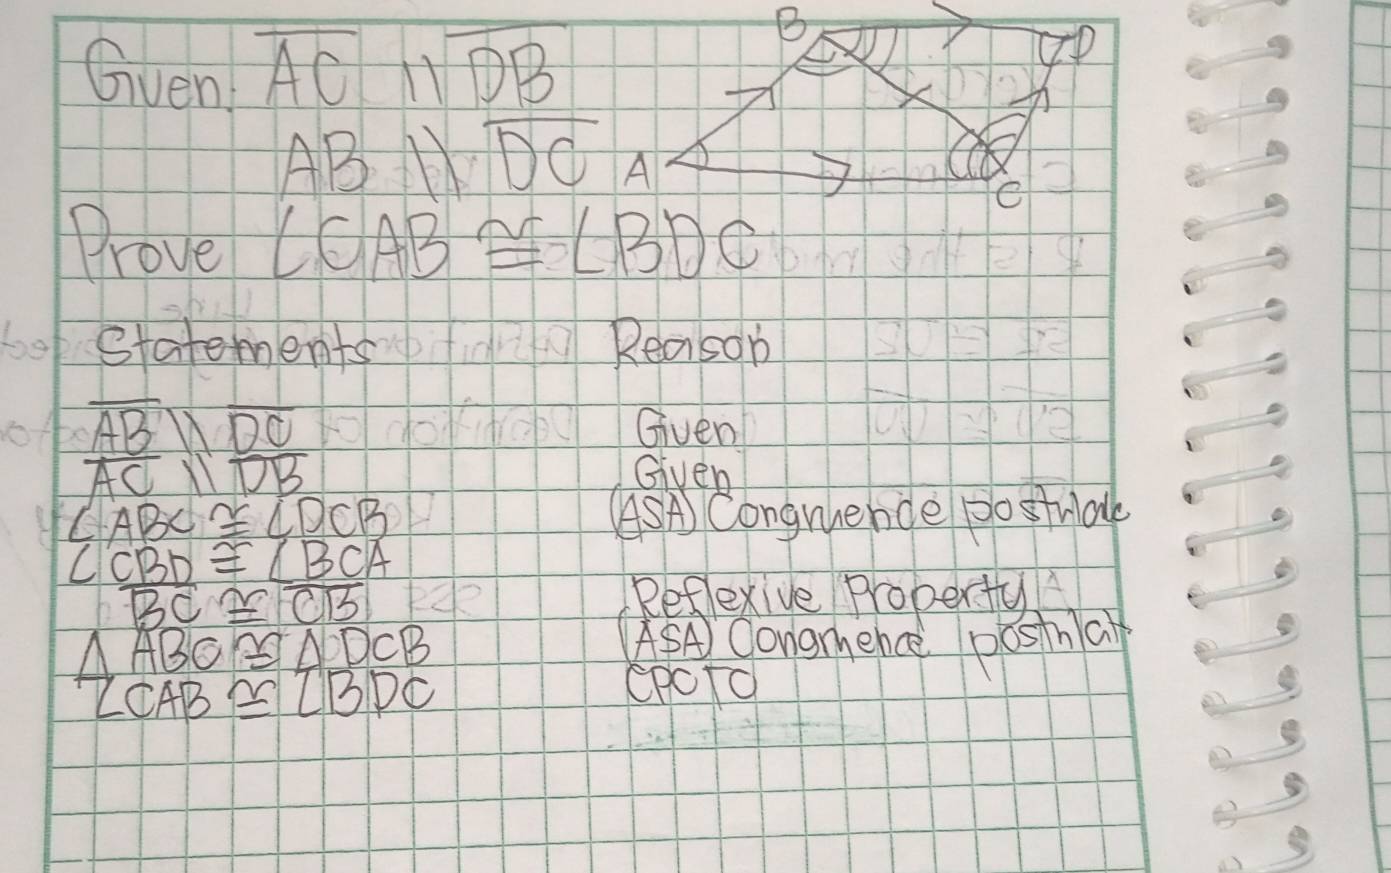 Given: AC || DB
AB || DC
Prove ∠CAB ≅ ∠BDC
B
D
A
C
Statements Reason
AB || DC Given
AC || DB Given
∠ABC ≅ ∠DCB (ASA) Congruence
∠CBD ≅ ∠BCA
BC ≅ CB Reflexive Property
Δ ABC ≅ Δ DCB (ASA)
∠CAB ≅ ∠BDC CPCTC